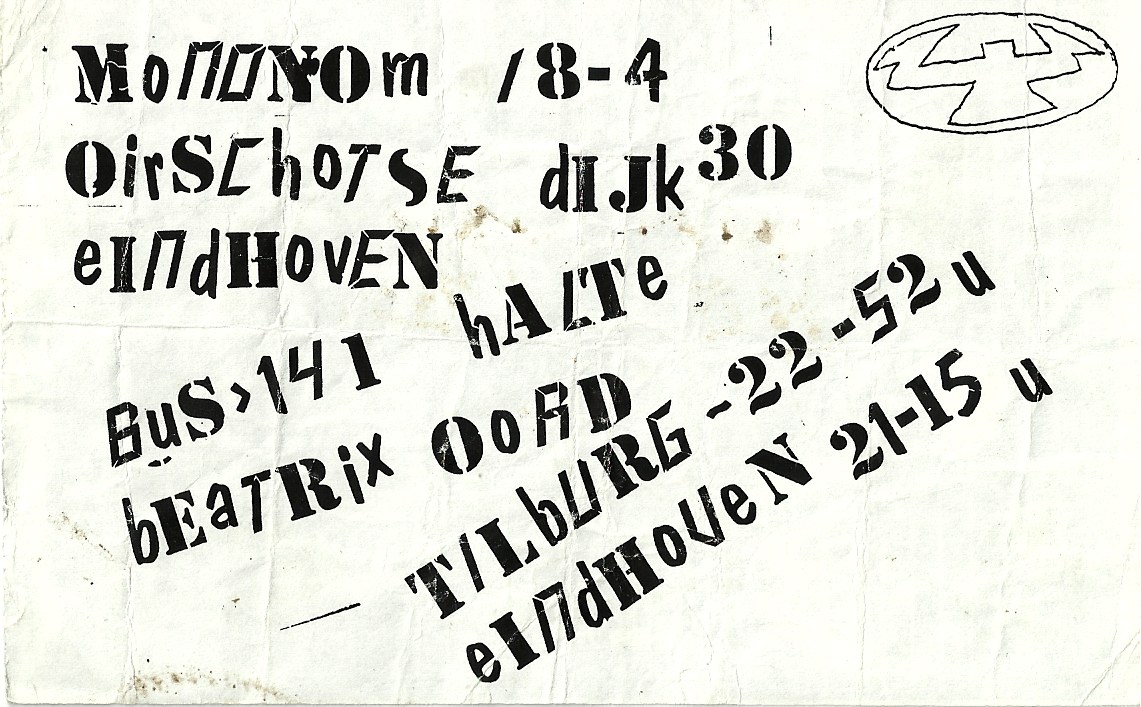 MonoNOm /8-4
OirSChoTSE dIJk 30
eIndHovEN
BuS>141 hALTe
bEaTRix OoRD
TILbURG -22-52u
eIndHoUeN 21-15 u